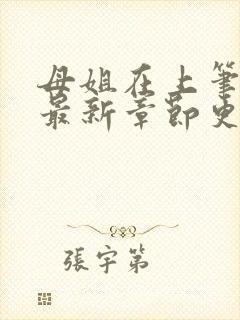 母姐在上筆
最新章節史
張宇第